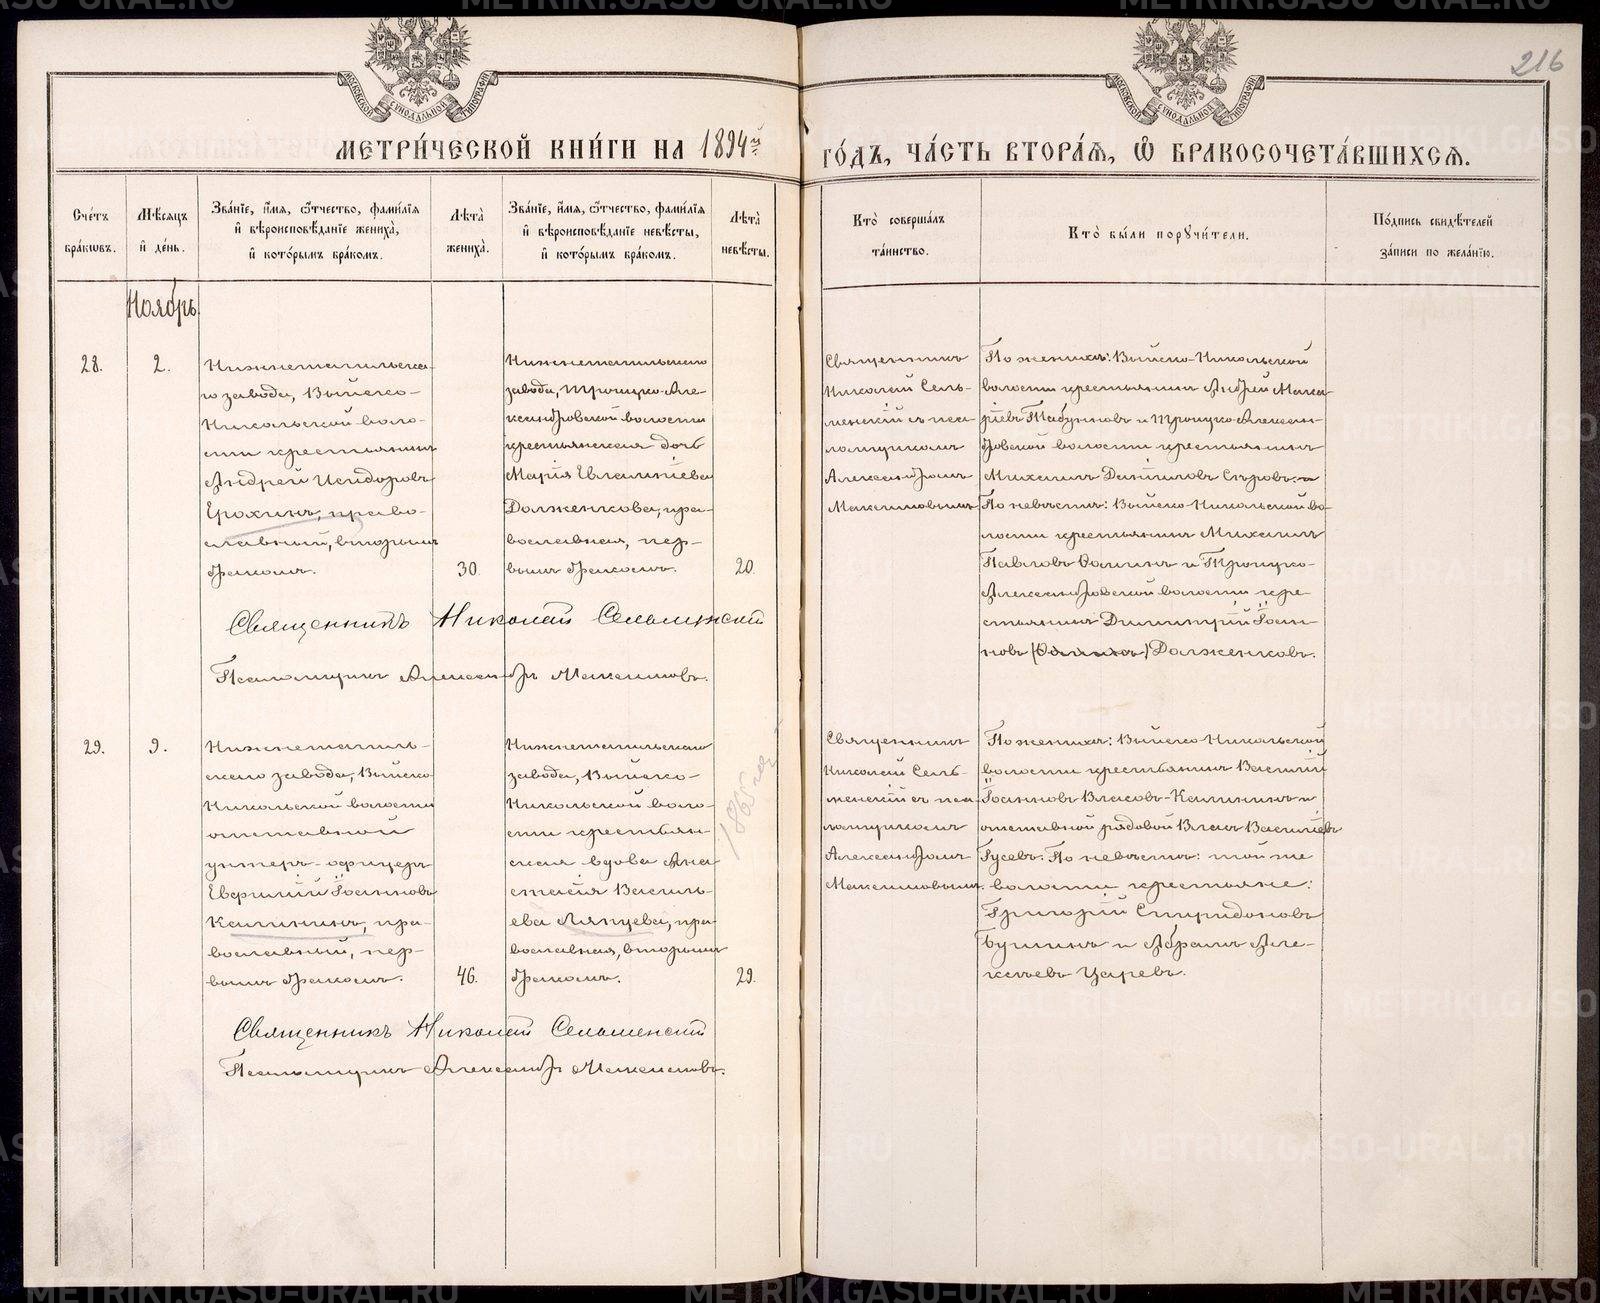 216
МЕТРИ́ЧЕСКОЙ КНИ́ГИ НА 1894й ГО́ДЪ, ЧА́СТЬ ВТОРА́Я, Ѿ БРАКОСОЧЕТА́ВШИХСЯ.
Сче́тъ бра́ковъ.
Мѣ́сяцъ и де́нь.
Зва́нїе, и́мя, ѻ́тчество, фами́лїя и вѣроисповѣ́данїе жениха̀, и кото́рымъ бра́комъ.
Лѣта̀ жениха̀.
Зва́нїе, и́мя, ѻ́тчество, фами́лїя и вѣроисповѣ́данїе невѣ́сты, и кото́рымъ бра́комъ.
Лѣта̀ невѣ́сты.
Кто̀ соверша́лъ та́инство.
Кто̀ бы́ли поручи́тели.
По́дпись свидѣ́телей за́писи по жела́нїю.
Ноябрь
28.
2.
Нижнетагильска-
го завода, Выйско-
Никольской воло-
сти крестьянинъ
Андрей Исидоровъ
Ерохинъ, право-
славный, вторымъ
бракомъ.
30.
Нижнетагильскаго
завода, Троицко-Але-
ксандровской волости
крестьянская дочь
Марія Евлампіева
Долженкова, пра-
вославная, пер-
вымъ бракомъ.
20.
Священникъ
Николай Сель-
менскій съ пса-
ломщикомъ
Александромъ
Максимовымъ
По женихѣ: Выйско-Никольской
волости крестьянинъ Андрей Мака-
ріевъ Табунновъ и Троицко-Алексан-
дровской волости крестьянинъ
Михаилъ Даниловъ Сѣровъ; и
По невѣстѣ: Выйско-Никольской во-
лости крестьянинъ Михаилъ
Павловъ Ѳоминъ и Троицко-
Александровской волости кре-
стьянинъ Димитрій Іоан-
новъ (Ѳоминъ) Долженковъ.
Священникъ Николай Сельменскій
Псаломщикъ Александръ Максимовъ.
29.
9.
Нижнетагиль-
скаго завода, Выйско-
Никольской волости
отставной
унтеръ-офицеръ
Евфимій Іоанновъ
Калининъ, пра-
вославный, пер-
вымъ бракомъ.
46.
Нижнетагильскаго
завода, Выйско-
Никольской воло-
сти крестьян-
ская вдова Ана-
стасія Василь-
ева Ляпцева, пра-
вославная, вторымъ
бракомъ.
29.
1865 га
Священникъ
Николай Сель-
менскій съ пса-
ломщикомъ
Александромъ
Максимовымъ.
По женихѣ: Выйско-Никольской
волости крестьянинъ Василій
Іоанновъ Власовъ-Калининъ и
отставной рядовой Власъ Василіевъ
Гусевъ. По невѣстѣ: той же
волости крестьяне:
Григорій Спиридоновъ
Бушинъ и Абрамъ Але-
ксѣевъ Царевъ.
Священникъ Николай Сельменскій
Псаломщикъ Александръ Максимовъ.
METRIKI.GASO-URAL.RU